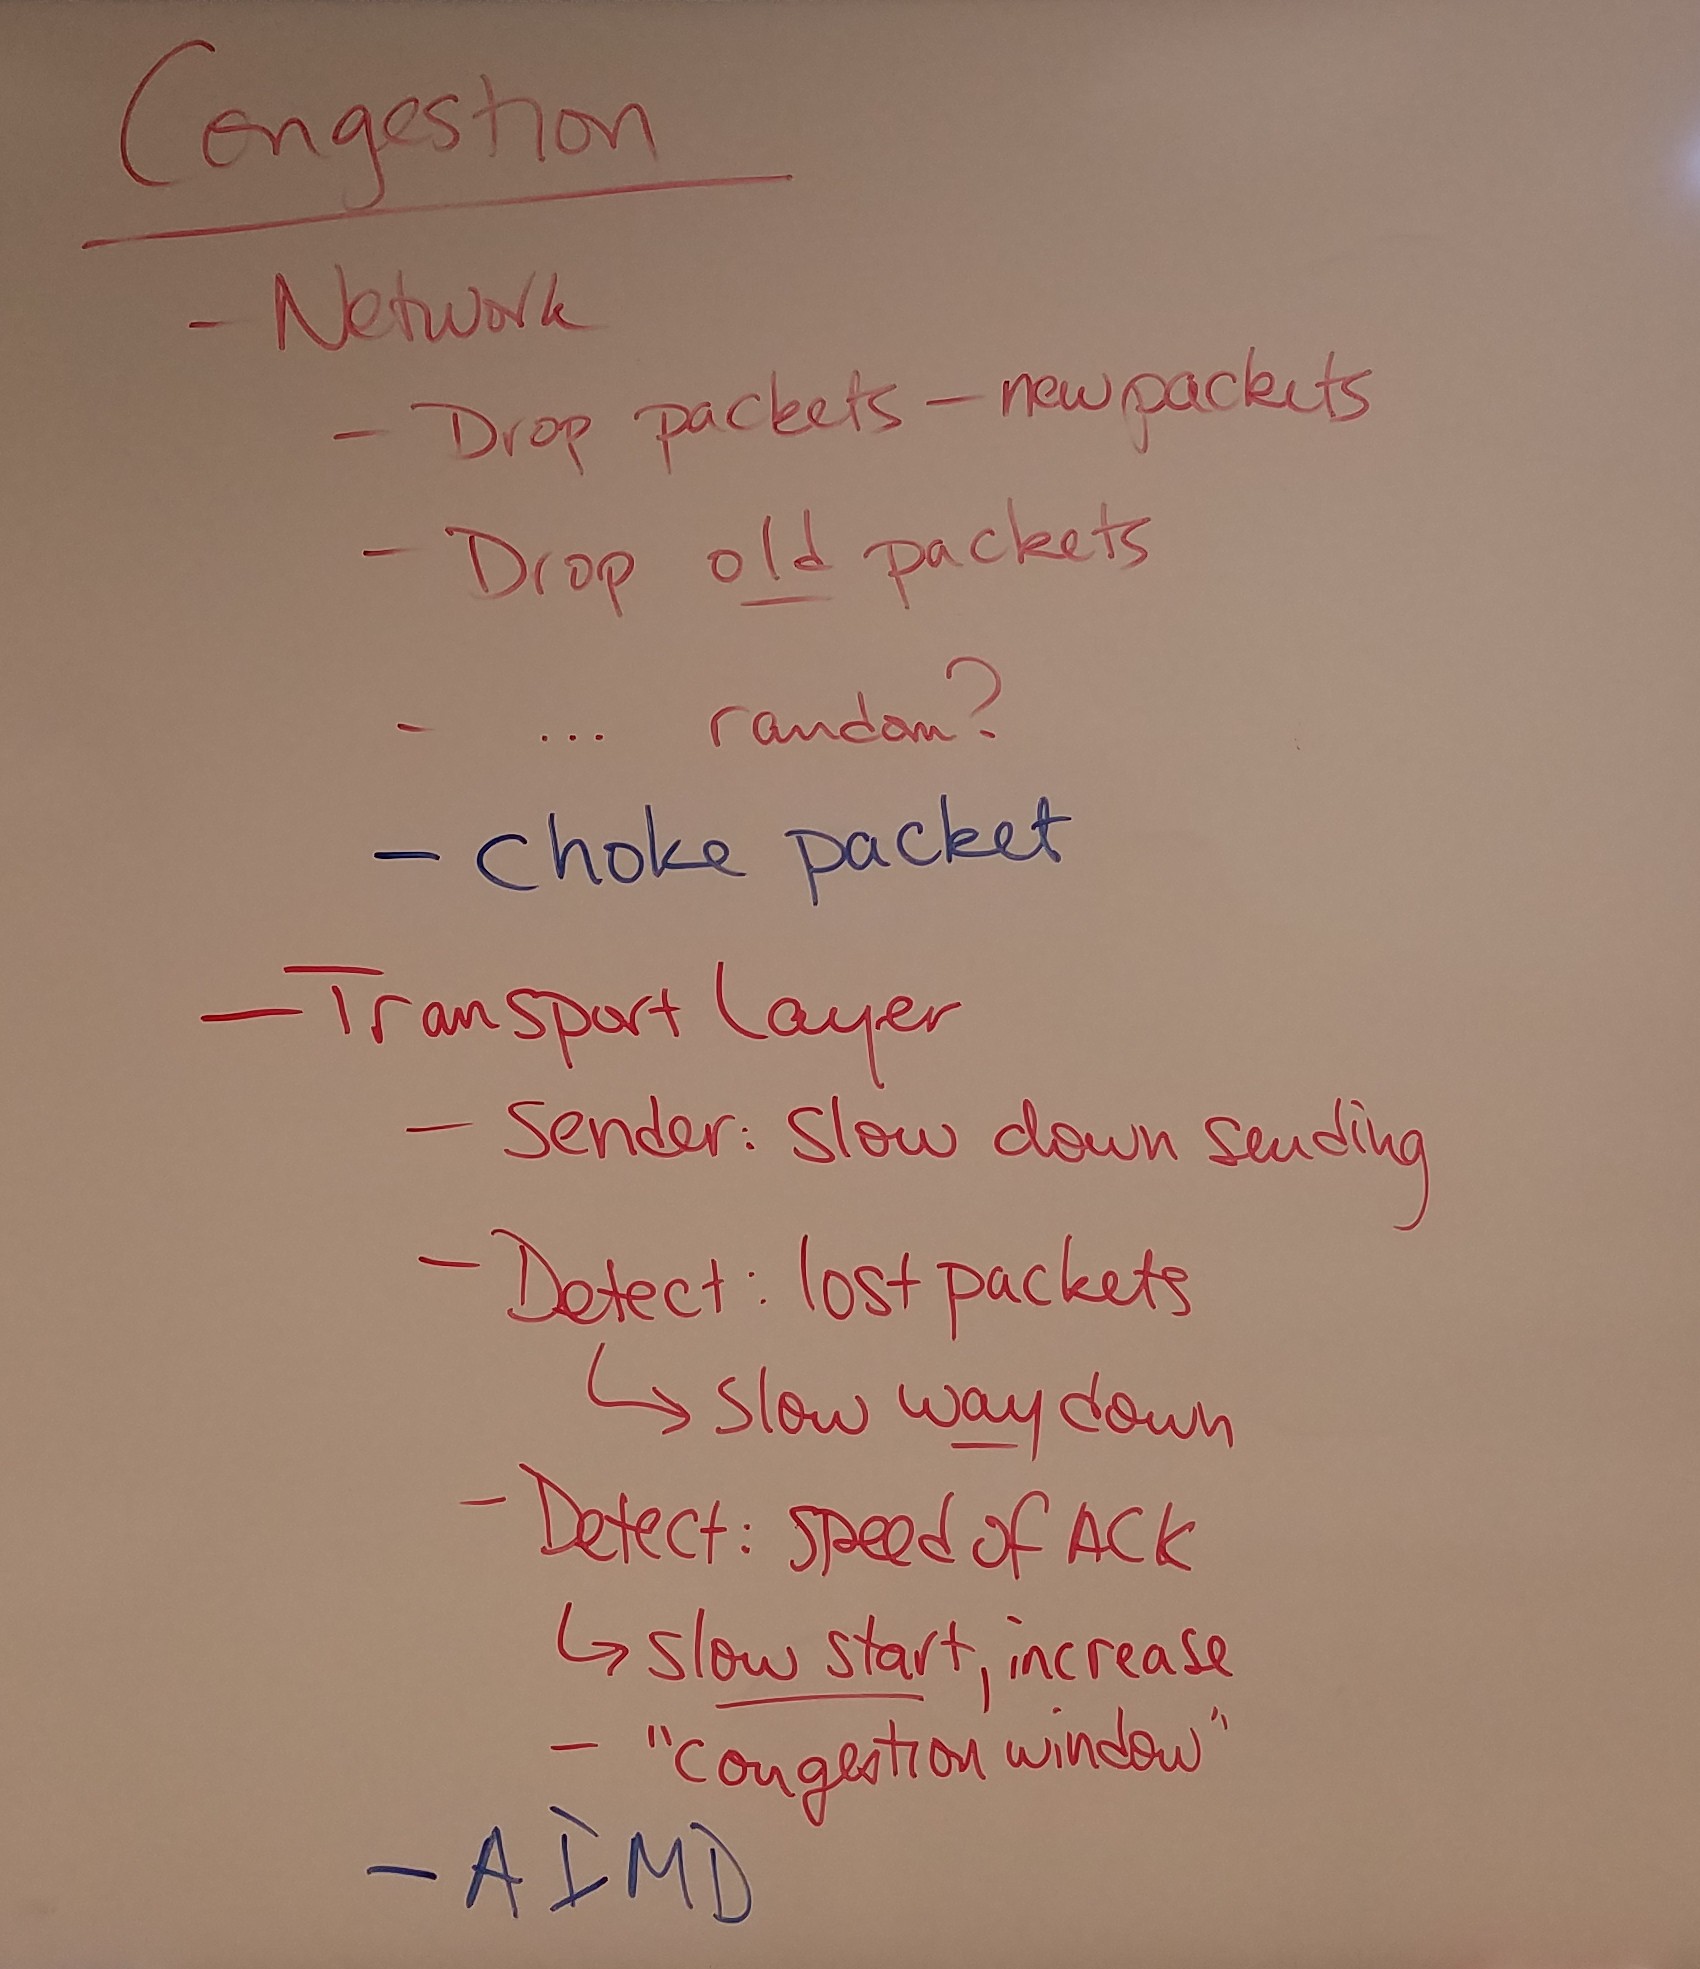 Congestion
- Network
- Drop packets - new packets
- Drop old packets
- ... random?
- choke packet
- Transport Layer
- Sender: slow down sending
- Detect: lost packets
↳ slow way down
- Detect: speed of ACK
↳ slow start, increase
- "congestion window"
- AIMD